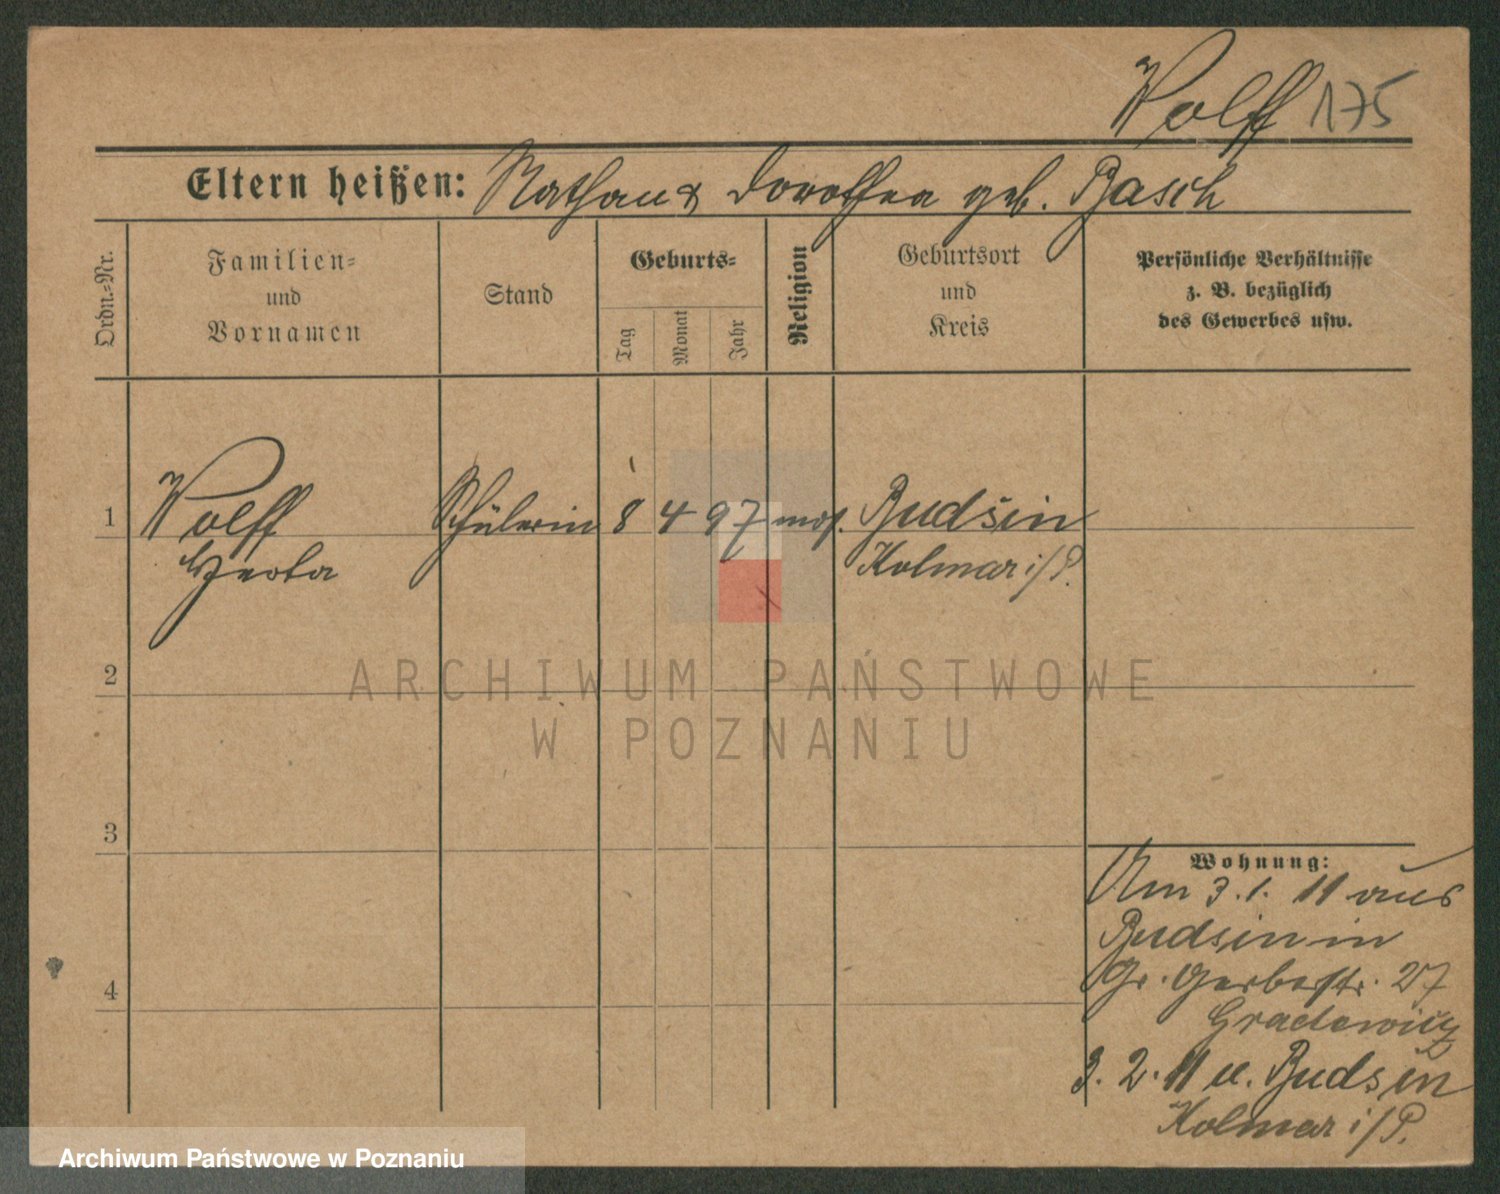 Wolff 175
Eltern heißen: Nathan & Dorothea geb. Basch
Ordn.-Nr.
Familien-
und
Vornamen
Stand
Geburts-
Tag
Monat
Jahr
Religion
Geburtsort
und
Kreis
Persönliche Verhältnisse
z. B. bezüglich
des Gewerbes usw.
1 Wolff Schülerin 8 4 97 mos. Budsin
Herta Kolmar i/P.
2
ARCHIWUM PAŃSTWOWE
W POZNANIU
3
Wohnung:
Am 3.1.11 aus
Budsin in
Gr. Gerberstr. 27
4
3.2.11 n. Budsin
Kolmar i/P.
Archiwum Państwowe w Poznaniu